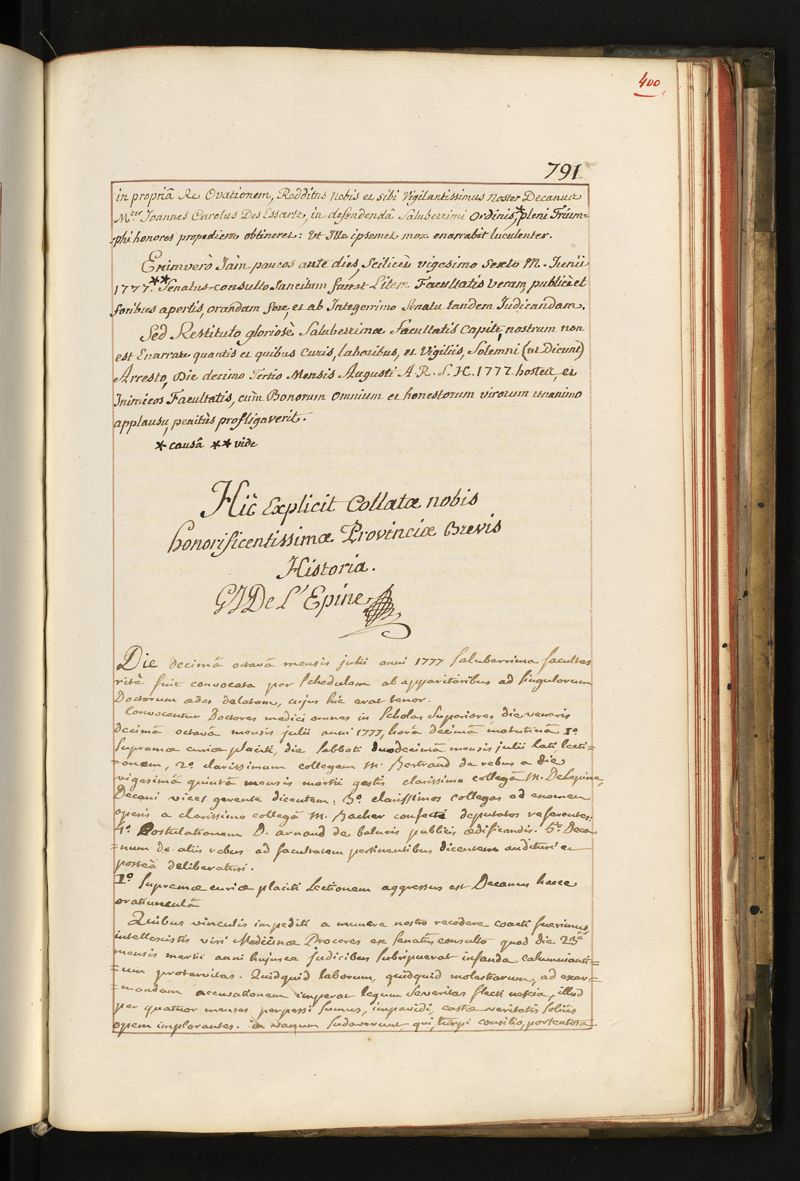 400
791
in propriâ Re Ovationem, Redditus nobis et sibi Vigilantissimus Noster Decanus
M.er Joannes Carolus Des Essartz, in defendendâ Saluberrimi Ordinis,* pleni Trium-
phi honores propediem obtineret: Ut Ille ipsemet mox enarrabit luculenter.
Enimverò Jam paucos ante dies, Scilicet vigesimo Sexto M. Junii
1777 ** Senatus-consulto Sancitum fuerat Litem Facultatis veram, publicè et
foribus apertis, orandam fore, et ab Integerrimo Senatu tandem Judicandam.
Sed Restituto gloriosè Saluberrimæ Facultatis Capite, nostrum non
est Enarrare quantis et quibus Curis, laboribus, et Vigiliis, Solemni (ut Dicunt)
Arresto, Die decimo Tertio Mensis Augusti A. R. S. H. 1777. hostes, et
Inimicos Facultatis, cum Bonorum Omnium et honestorum virorum unanimo
applausu, penitùs profligaverit.
* causâ ** vide
Hîc Explicit Collatæ nobis
honorificentissimæ Provinciæ Brevis
Historia.
GJDe L'Epine
Die decimâ octavâ mensis julii anni 1777 saluberrima facultas
ritè fuit convocata per Schedulam ab apparitoribus ad singulorum
Doctorum ædes delatam, cujus hic erat tenor.
Convocentur Doctores medici omnes in Scholas Superiores, die veneris
decimâ octavâ mensis julii anni 1777, horâ decimâ matutinâ 1.o
Supremæ curiæ placiti, die sabbati duodecimâ mensis julii lati, lecti-
=onem, 2.o clarissimum collegam M. Bertrand de rebus a die
vigesimâ quintâ mensis martii gestis clarissimo collegâ M. DeLepine,
Decani vices gerente dicentem; 3.o clarissimos collegas ad examen
operis a clarissimo collegâ M. Bacher confecti deputatos referentes;
4.o Postulationem D. arnaud de balneis publicis ædificandis. 5.o Deca-
=num de aliis rebus ad facultatem pertinentibus dicentem audituri et
posteà deliberaturi.
1.o Supremæ curiæ placiti Lectionem aggressus est Decanus hacce
oratiunculâ
Quibus vinculis impediti a munere nostro recedere coacti fuerimus,
intellexistis viri Medicinæ Proceres ex senatus consulto quod die 25.â
mensis martii anni hujusce judicibus subripuerat infanda calumnianti-
=um protervitas. Quidquid laborum, quidquid molestiarum, ad exar-
=mandam accusationem imperat legum severitas flecti nescia, illud
per quatuor menses perpessi sumus, impavidi, castæ veritatis solius
opem implorantes. in vanum sudaverunt qui, turpi consilio, portentosa